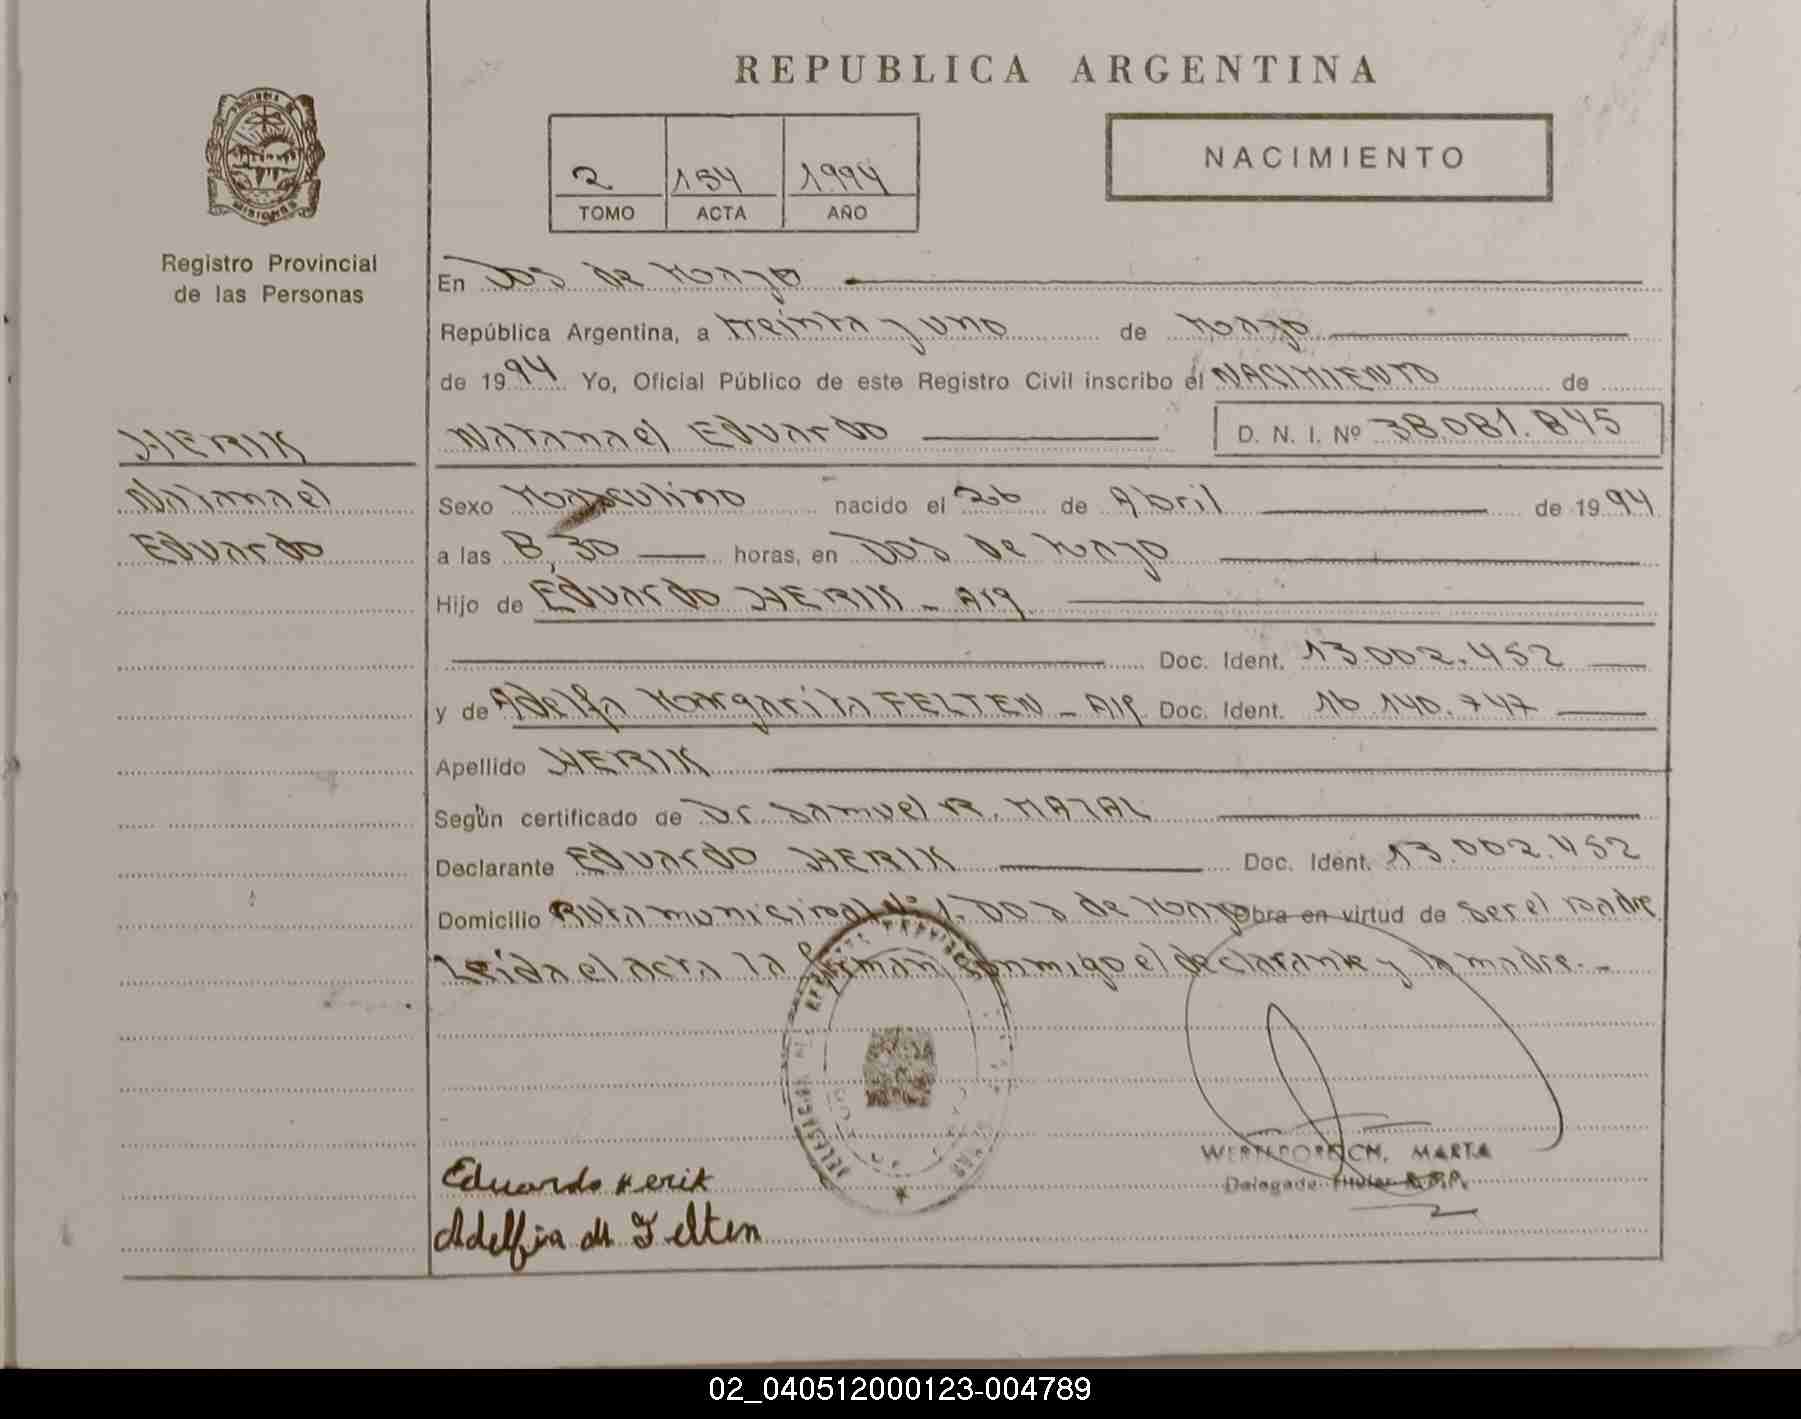 REPUBLICA ARGENTINA
PROVINCIA DE
MISIONES
Registro Provincial
de las Personas
2 154 1994
TOMO ACTA AÑO
NACIMIENTO
En Dos de Mayo
República Argentina, a treinta y uno de Mayo
de 1994 Yo, Oficial Público de este Registro Civil inscribo el NACIMIENTO de
HERIK
Natanael
Eduardo
Natanael Eduardo D. N. I. Nº 38.081.845
Sexo Masculino nacido el 26 de Abril de 1994
a las 8,30 horas, en Dos de Mayo
Hijo de Eduardo HERIK - Arg
Doc. Ident. 13.002.452
y de Adelfa Margarita FELTEN - Arg. Doc. Ident. 16.140.747
Apellido HERIK
Según certificado de Dr. Samuel R. MATAL
Declarante Eduardo HERIK Doc. Ident. 13.002.452
Domicilio Ruta municipal Nº 1. Dos de Mayo Obra en virtud de ser el padre
Leida el acta la firman conmigo el declarante y la madre.-
MARTA
Delegada Titular R.P.P.
Eduardo Herik
Adelfia M Felten
02_040512000123-004789